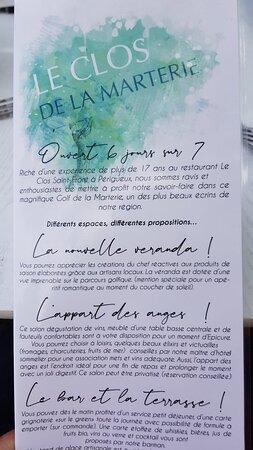 LE CLOS
DE LA MARTERIE
Ouvert 6 jours sur 7
Riche d'une expérience de plus de 17 ans au restaurant Le
Clos Saint-Front à Périgueux, nous sommes ravis et
enthousiastes de mettre à profit notre savoir-faire dans ce
magnifique Golf de la Marterie, un des plus beaux écrins de
notre région.
Différents espaces, différentes propositions...
La nouvelle veranda !
Vous pourrez apprécier les créations du chef réactives aux produits de
saison élaborées grâce aux artisans locaux. La véranda est dotée d'une
vue imprenable sur le parcours golfique. (mention spéciale pour un apé-
ritif romantique au moment du coucher de soleil).
L'appart des anges !
Ce salon dégustation de vins, meublé d'une table basse centrale et de
fauteuils confortables sont à votre disposition pour un moment d'Epicurie.
Vous pourrez choisir à loisirs, quelques beaux élixirs et victuailles
(fromages, charcuteries, fruits de mer) conseillés par notre maître d'hôtel
sommelier pour une association mets et vins adéquate. Aussi, l'appart des
anges est l'endroit idéal pour une fin de repas et prolonger le moment
avec un joli digestif. Ce salon peut être privatisé (réservation conseillée)
Le bar et la terrasse !
Vous pouvez dès le matin profiter d'un service petit déjeuner, d'une carte
grignoterie sur le green toute la journée avec possibilité de formule à
emporter (sur commande). Une carte étoffée de whiskies, bières, jus de
fruits bio, vins au verre et cocktail vous sont
proposés par notre barman.
de glace artisanale est